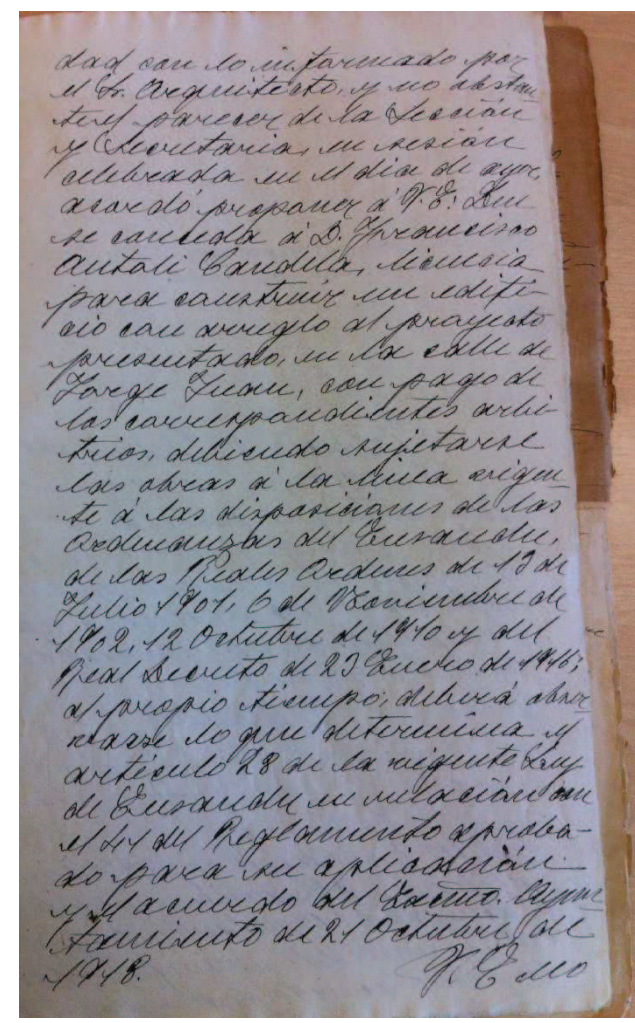 dad con lo informado por
el Sr. Arquitecto, y no obstan
te el parecer de la Sección
y Secretaria, en sesión
celebrada en el dia de ayer,
acordó proponer á V.E: Que
se conceda á D. Francisco
Antoli Candela, licencia
para construir un edifi-
cio con arreglo al proyecto
presentado, en la calle de
Jorge Juan, con pago de
los correspondientes arbi-
trios, debiendo sujetarse
las obras á la linea vigen
te á las disposiciones de las
Ordenanzas del Ensanche,
de las Reales Ordenes de 13 de
Julio 1901, 6 de Noviembre de
1902, 12 Octubre de 1910 y del
Real Decreto de 23 Enero de 1916;
al propio tiempo, deberá obser
varse lo que determina el
artículo 28 de la vigente Ley
de Ensanche en relación con
el 41 del Reglamento aproba-
do para su aplicación
y el acuerdo del Excmo. Ayun
tamiento de 21 Octubre de
1918.
V. E no